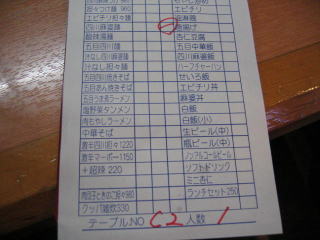 担々つけ麺 960
エビチリ担々麺
四川麻婆麺
酸辣湯麺
五目四川麺
汁なし四川麻婆麺
汁なし担々麺
五目四川焼きそば
五目あん焼きそば
五目うま煮ラーメン
塩野菜タンメン
肉もやしラーメン
中華そば
激辛四川担々1220
激辛マーボー1150
+超辣 220
クッパ雑炊330
杏仁豆腐
五目中華飯
四川麻婆飯
ハーフチャーハン
せいろ飯
エビチリ丼
麻婆丼
白飯
白飯(小)
生ビール(中)
瓶ビール(中)
ノンアルコールビール
ソフトドリンク
ミニ杏仁
ランチセット250
テーブルNO C2 人数 1